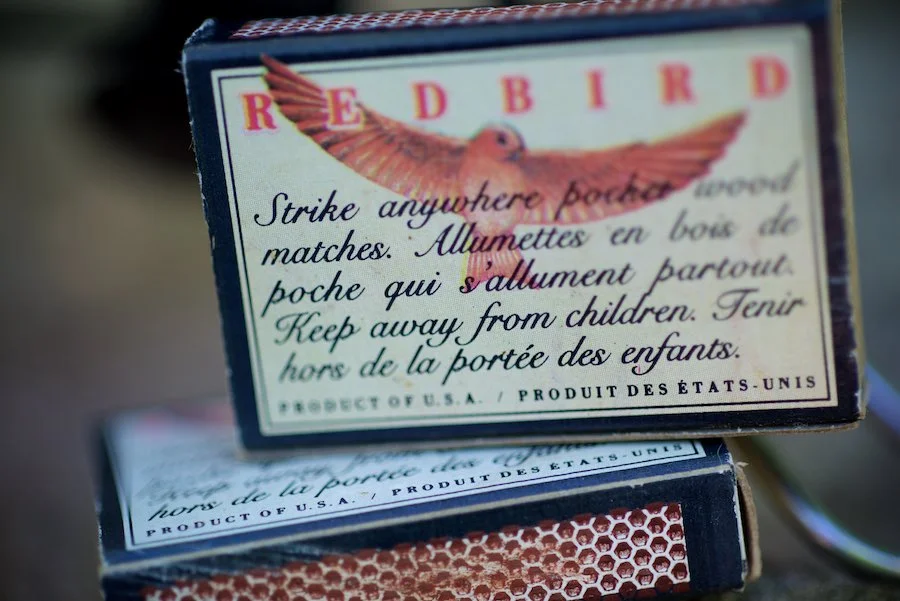 REDBIRD
Strike anywhere pocket wood
matches. Allumettes en bois de
poche qui s'allument partout.
Keep away from children. Tenir
hors de la portée des enfants.
PRODUCT OF U.S.A. / PRODUIT DES ÉTATS-UNIS
Keep away from
hors de la portée des enfants.
PRODUCT OF U.S.A. / PRODUIT DES ÉTATS-UNIS